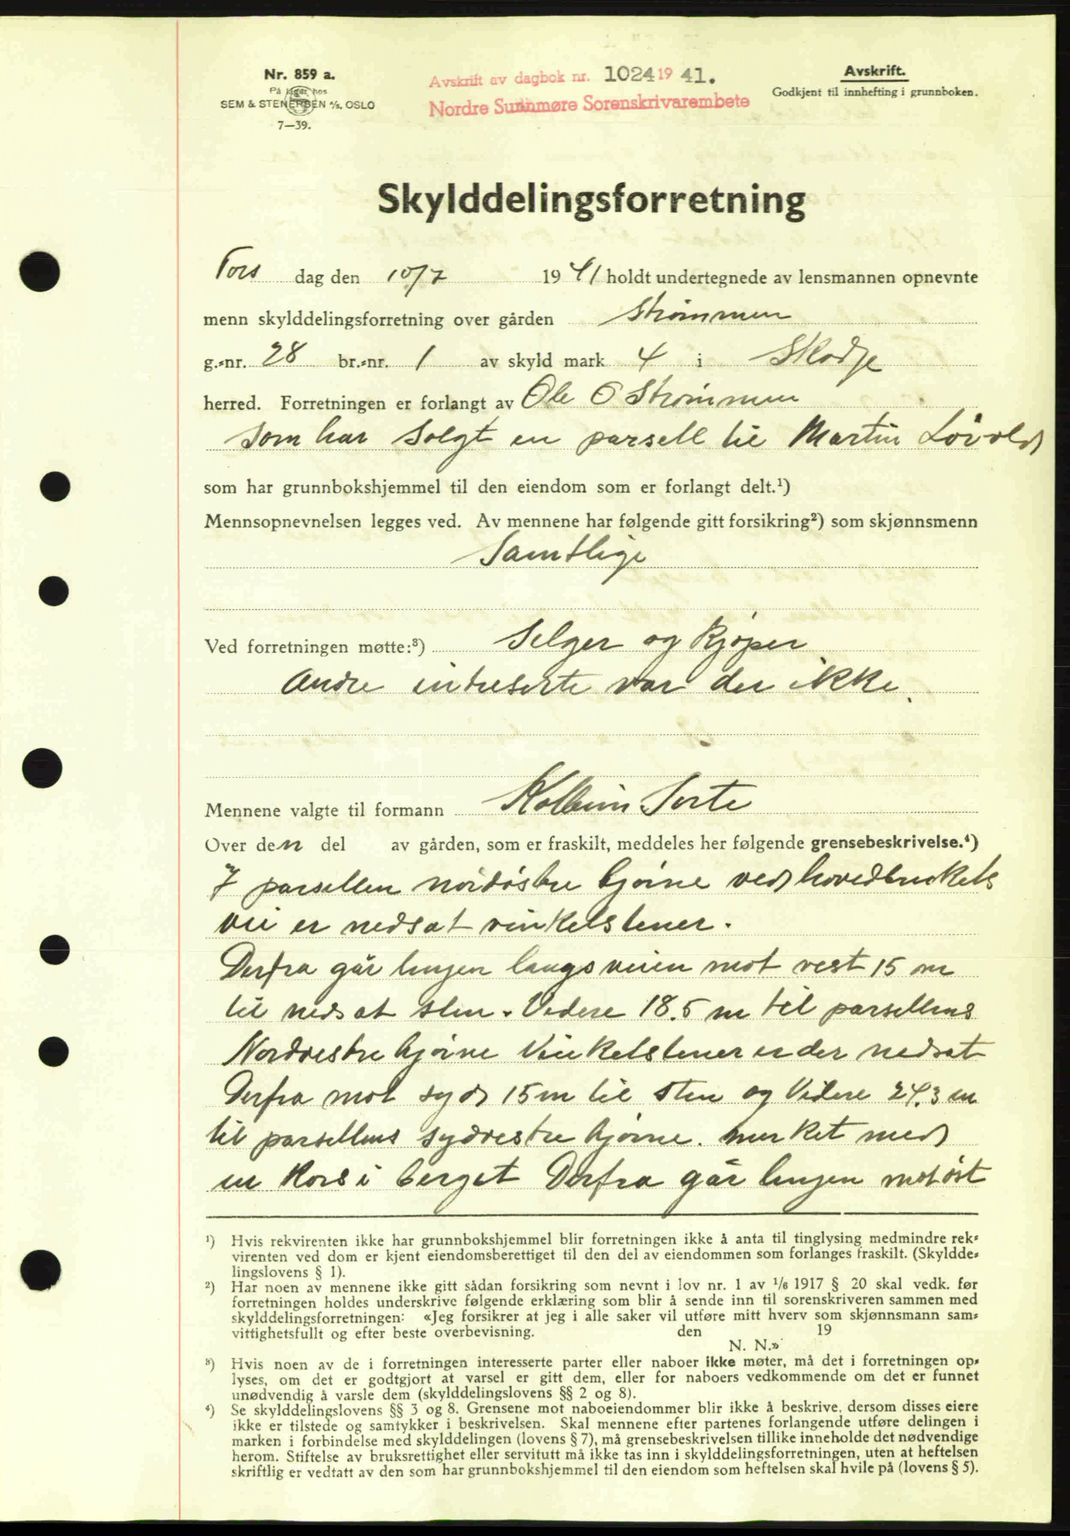 Nr. 859 a.
På lager hos
SEM & STENERSEN A/S, OSLO
7—39.
Avskrift av dagbok nr. 1024 1941.
Nordre Sunnmøre Sorenskrivarembete
Avskrift.
Godkjent til innhefting i grunnboken.
Skylddelingsforretning
Tors dag den 10/7 1941 holdt undertegnede av lensmannen opnevnte
menn skylddelingsforretning over gården Strømmen
g.-nr. 28 br.-nr. 1 av skyld mark 4 i Skodje
herred. Forretningen er forlangt av Ole O Strømmen
som har solgt en parsell til Martin Løvold
som har grunnbokshjemmel til den eiendom som er forlangt delt.¹)
Mennsopnevnelsen legges ved. Av mennene har følgende gitt forsikring²) som skjønnsmenn
Samtlige
Ved forretningen møtte:³) Selger og Kjøper
Andre intreserte var der ikke.
Mennene valgte til formann Kolbein Sorte
Over den del av gården, som er fraskilt, meddeles her følgende grensebeskrivelse.⁴)
I parsellen nordøstre hjørne ved hovedbrukets
vei er nedsat vinkelstener.
Derfra går linjen langs veien mot vest 15 m
til nedsat sten. Videre 18.5 m til parsellens
Nordvestre hjørne Vinkelstener er der nedsat
Derfra mot syd 15 m til sten og Videre 24.3 m
til parsellens sydvestre hjørne. merket med
en Kors i berget Derfra går linjen mot øst
¹) Hvis rekvirenten ikke har grunnbokshjemmel blir forretningen ikke å anta til tinglysing medmindre rek-
virenten ved dom er kjent eiendomsberettiget til den del av eiendommen som forlanges fraskilt. (Skyldde-
lingslovens § 1).
²) Har noen av mennene ikke gitt sådan forsikring som nevnt i lov nr. 1 av 1/6 1917 § 20 skal vedk. før
forretningen holdes underskrive følgende erklæring som blir å sende inn til sorenskriveren sammen med
skylddelingsforretningen: «Jeg forsikrer at jeg i alle saker vil utføre mitt hverv som skjønnsmann sam-
vittighetsfullt og efter beste overbevisning. den 19
N. N.»
³) Hvis noen av de i forretningen interesserte parter eller naboer ikke møter, må det i forretningen op-
lyses, om det er godtgjort at varsel er gitt dem, eller for naboers vedkommende om det er funnet
unødvendig å varsle dem (skylddelingslovens §§ 2 og 8).
⁴) Se skylddelingslovens §§ 3 og 8. Grensene mot naboeiendommer blir ikke å beskrive, dersom disses eiere
ikke er tilstede og samtykker i beskrivelsen. Skal mennene efter partenes forlangende utføre delingen i
marken i forbindelse med skylddelingen (lovens § 7), må grensebeskrivelsen tillike inneholde det nødvendige
herom. Stiftelse av bruksrettighet eller servitutt må ikke tas inn i skylddelingsforretningen, uten at heftelsen
skriftlig er vedtatt av den som har grunnbokshjemmel til den eiendom som heftelsen skal hvile på (lovens § 5).